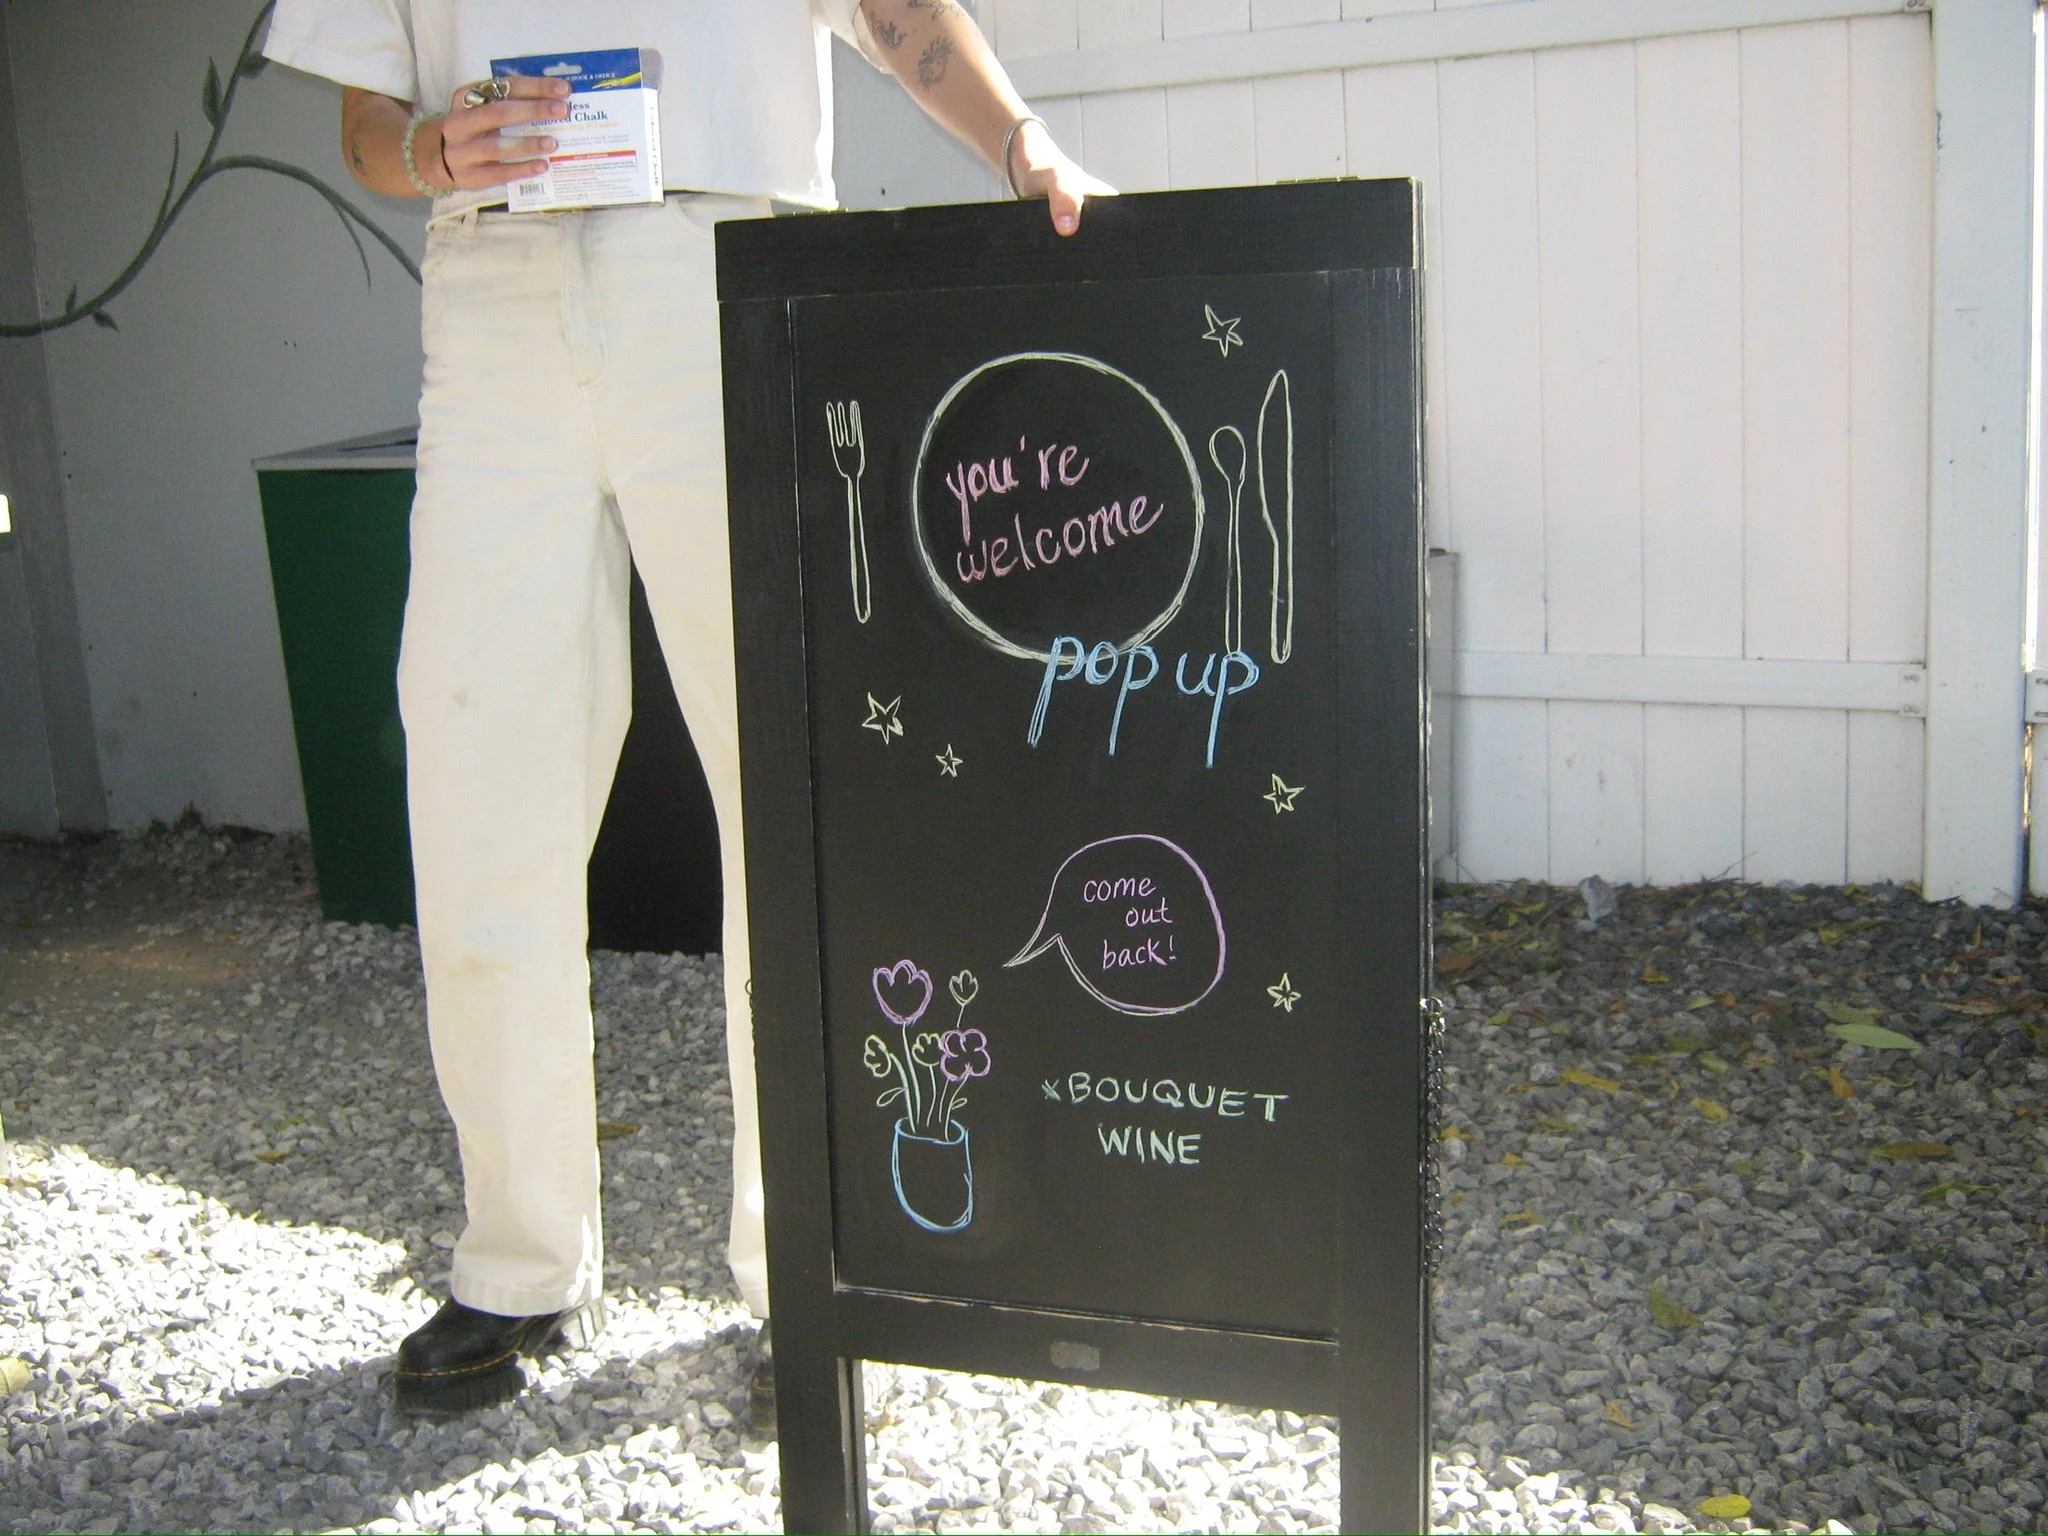 SCHOOL & OFFICE
Colored Chalk
you're
welcome
pop up
come
out
back!
*BOUQUET
WINE